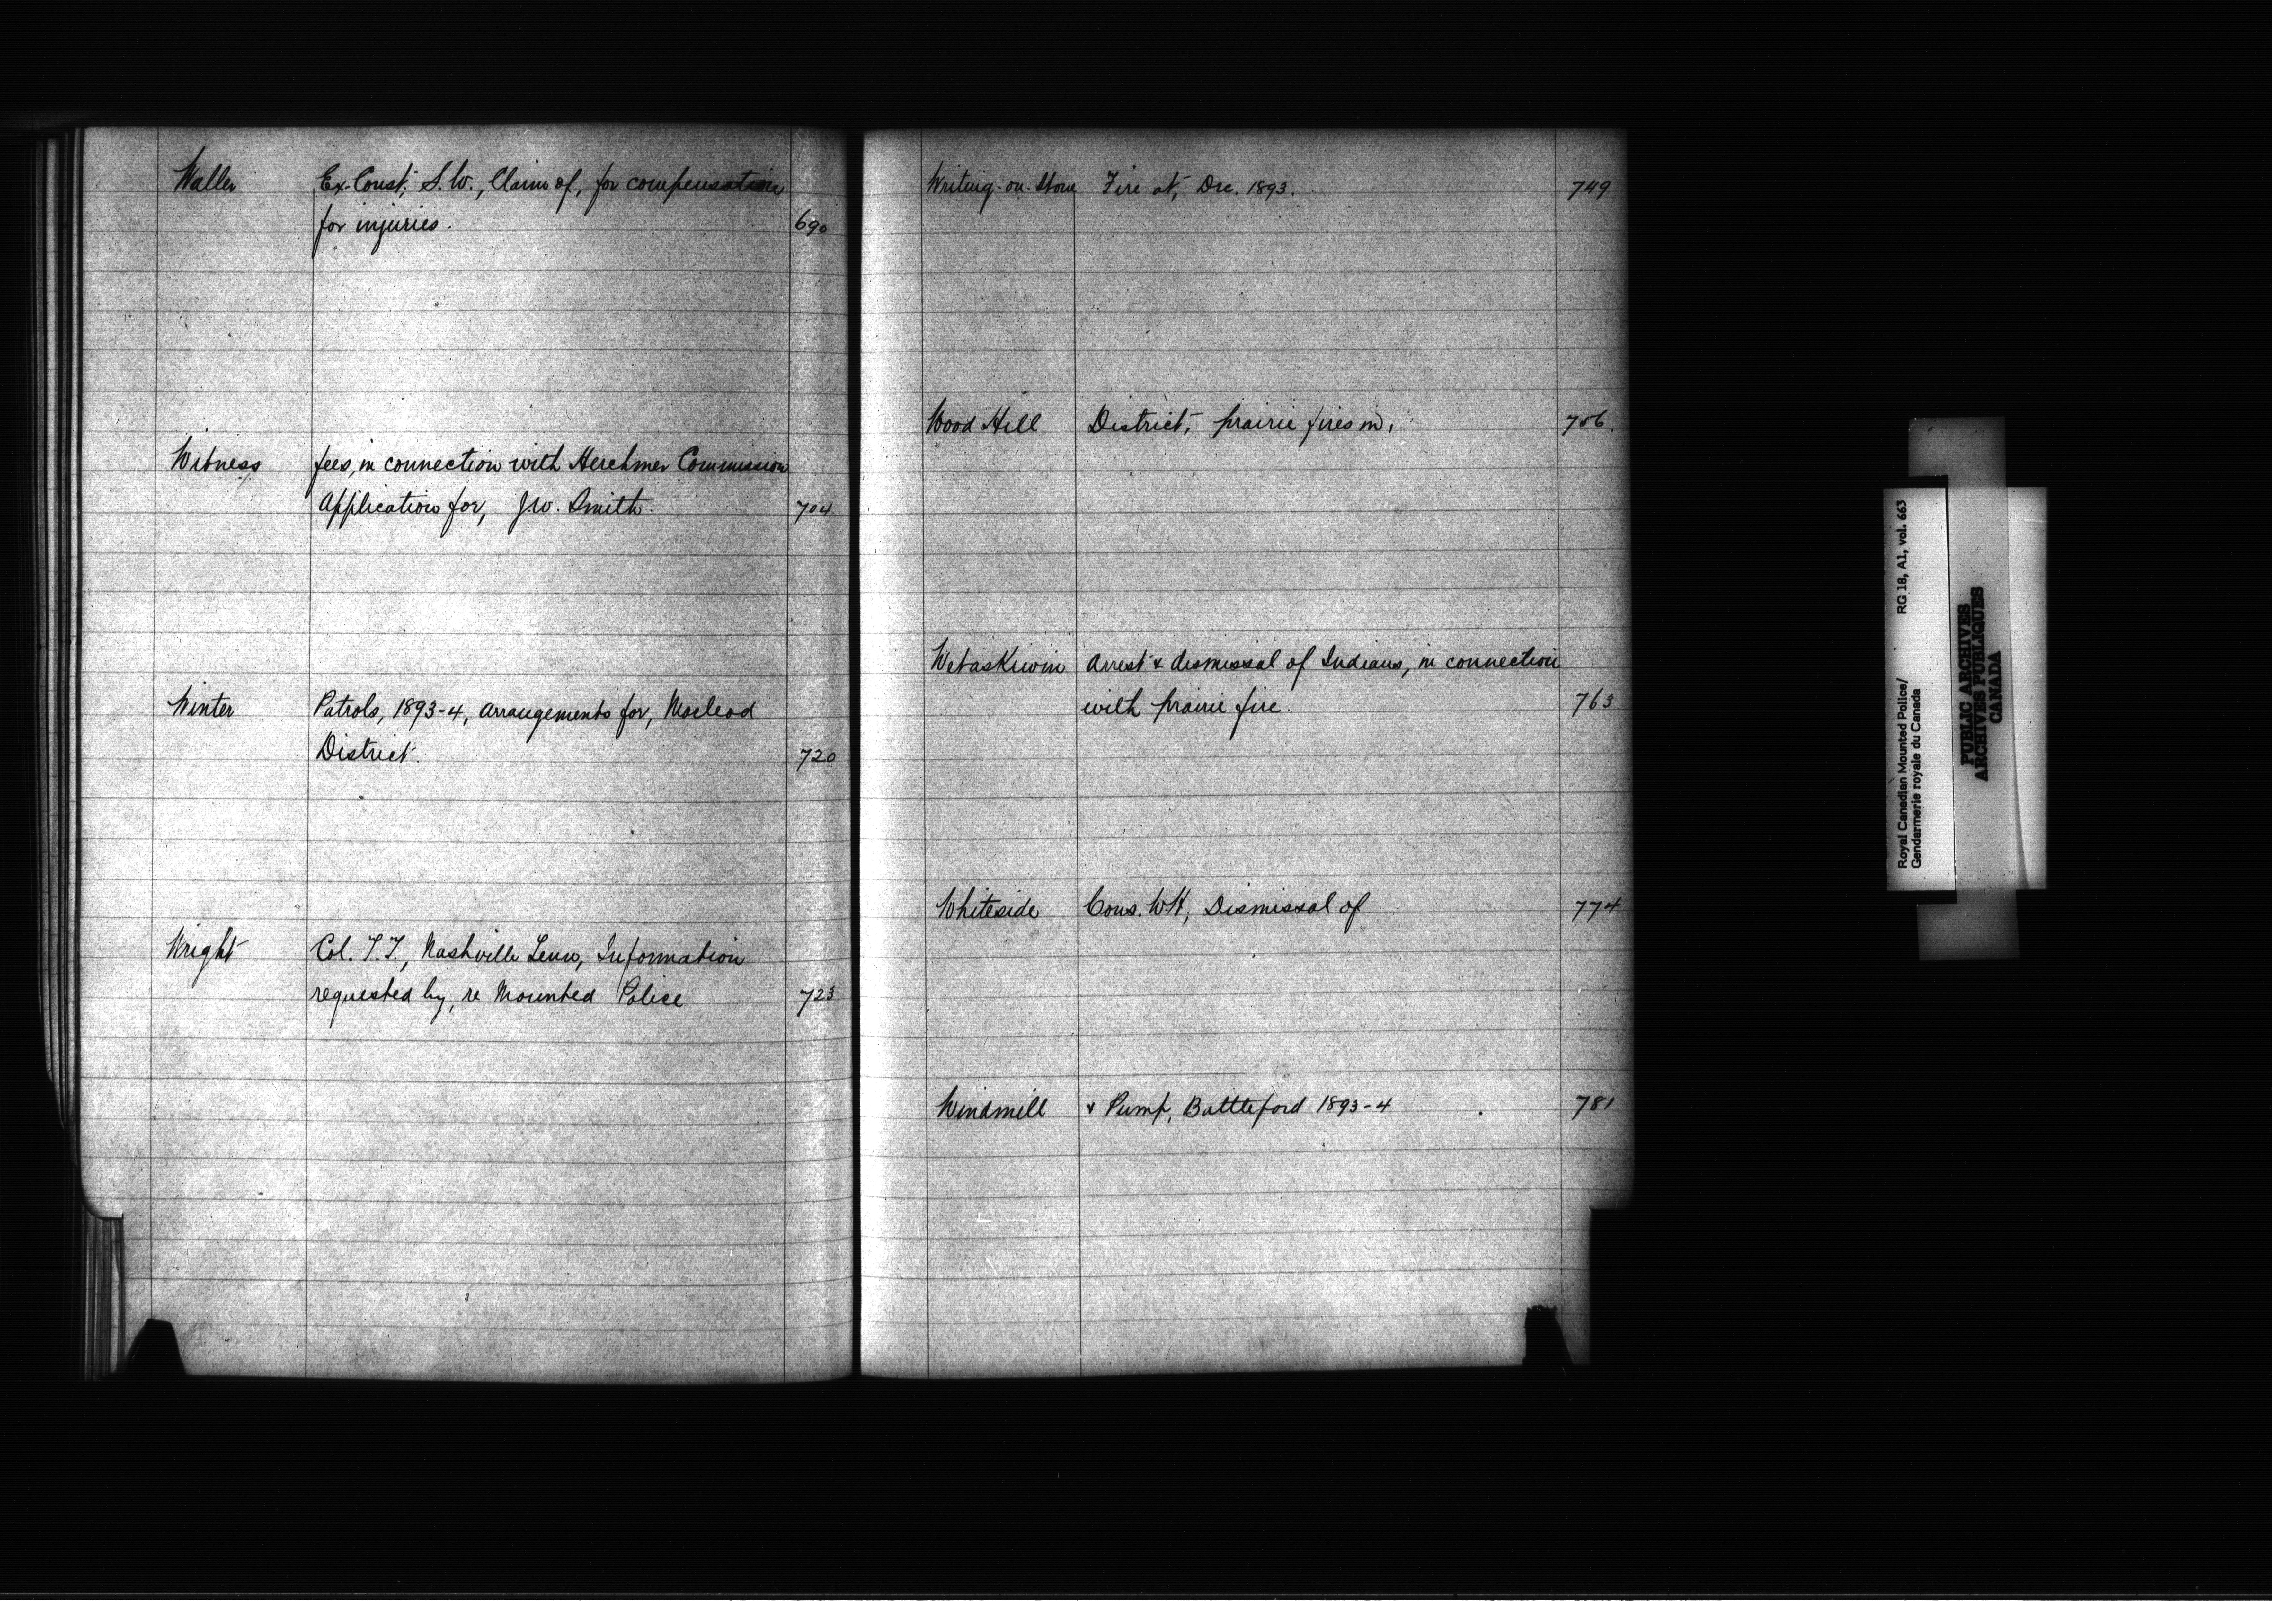 Waller Ex-Const; S.W., Claim of, for compensation
for injuries. 690
Witness fees, in connection with Herchmer Commission
Application for, J.W. Smith. 704
Winter Patrols, 1893-4, arrangements for, Macleod
District. 720
Wright Col. T.T., Nashville Tenn, Information
requested by, re Mounted Police 723
Writing-on-Stone Fire at, Dec. 1893. 749
Wood Hill District, prairie fires in, 756.
Wetaskiwin Arrest & dismissal of Indians, in connection
with prairie fire. 763
Whiteside Cons. WH, Dismissal of 774
Windmill & Pump, Battleford 1893-4 781
Royal Canadian Mounted Police/ RG 18, A1, vol. 663
Gendarmerie royale du Canada
PUBLIC ARCHIVES
ARCHIVES PUBLIQUES
CANADA